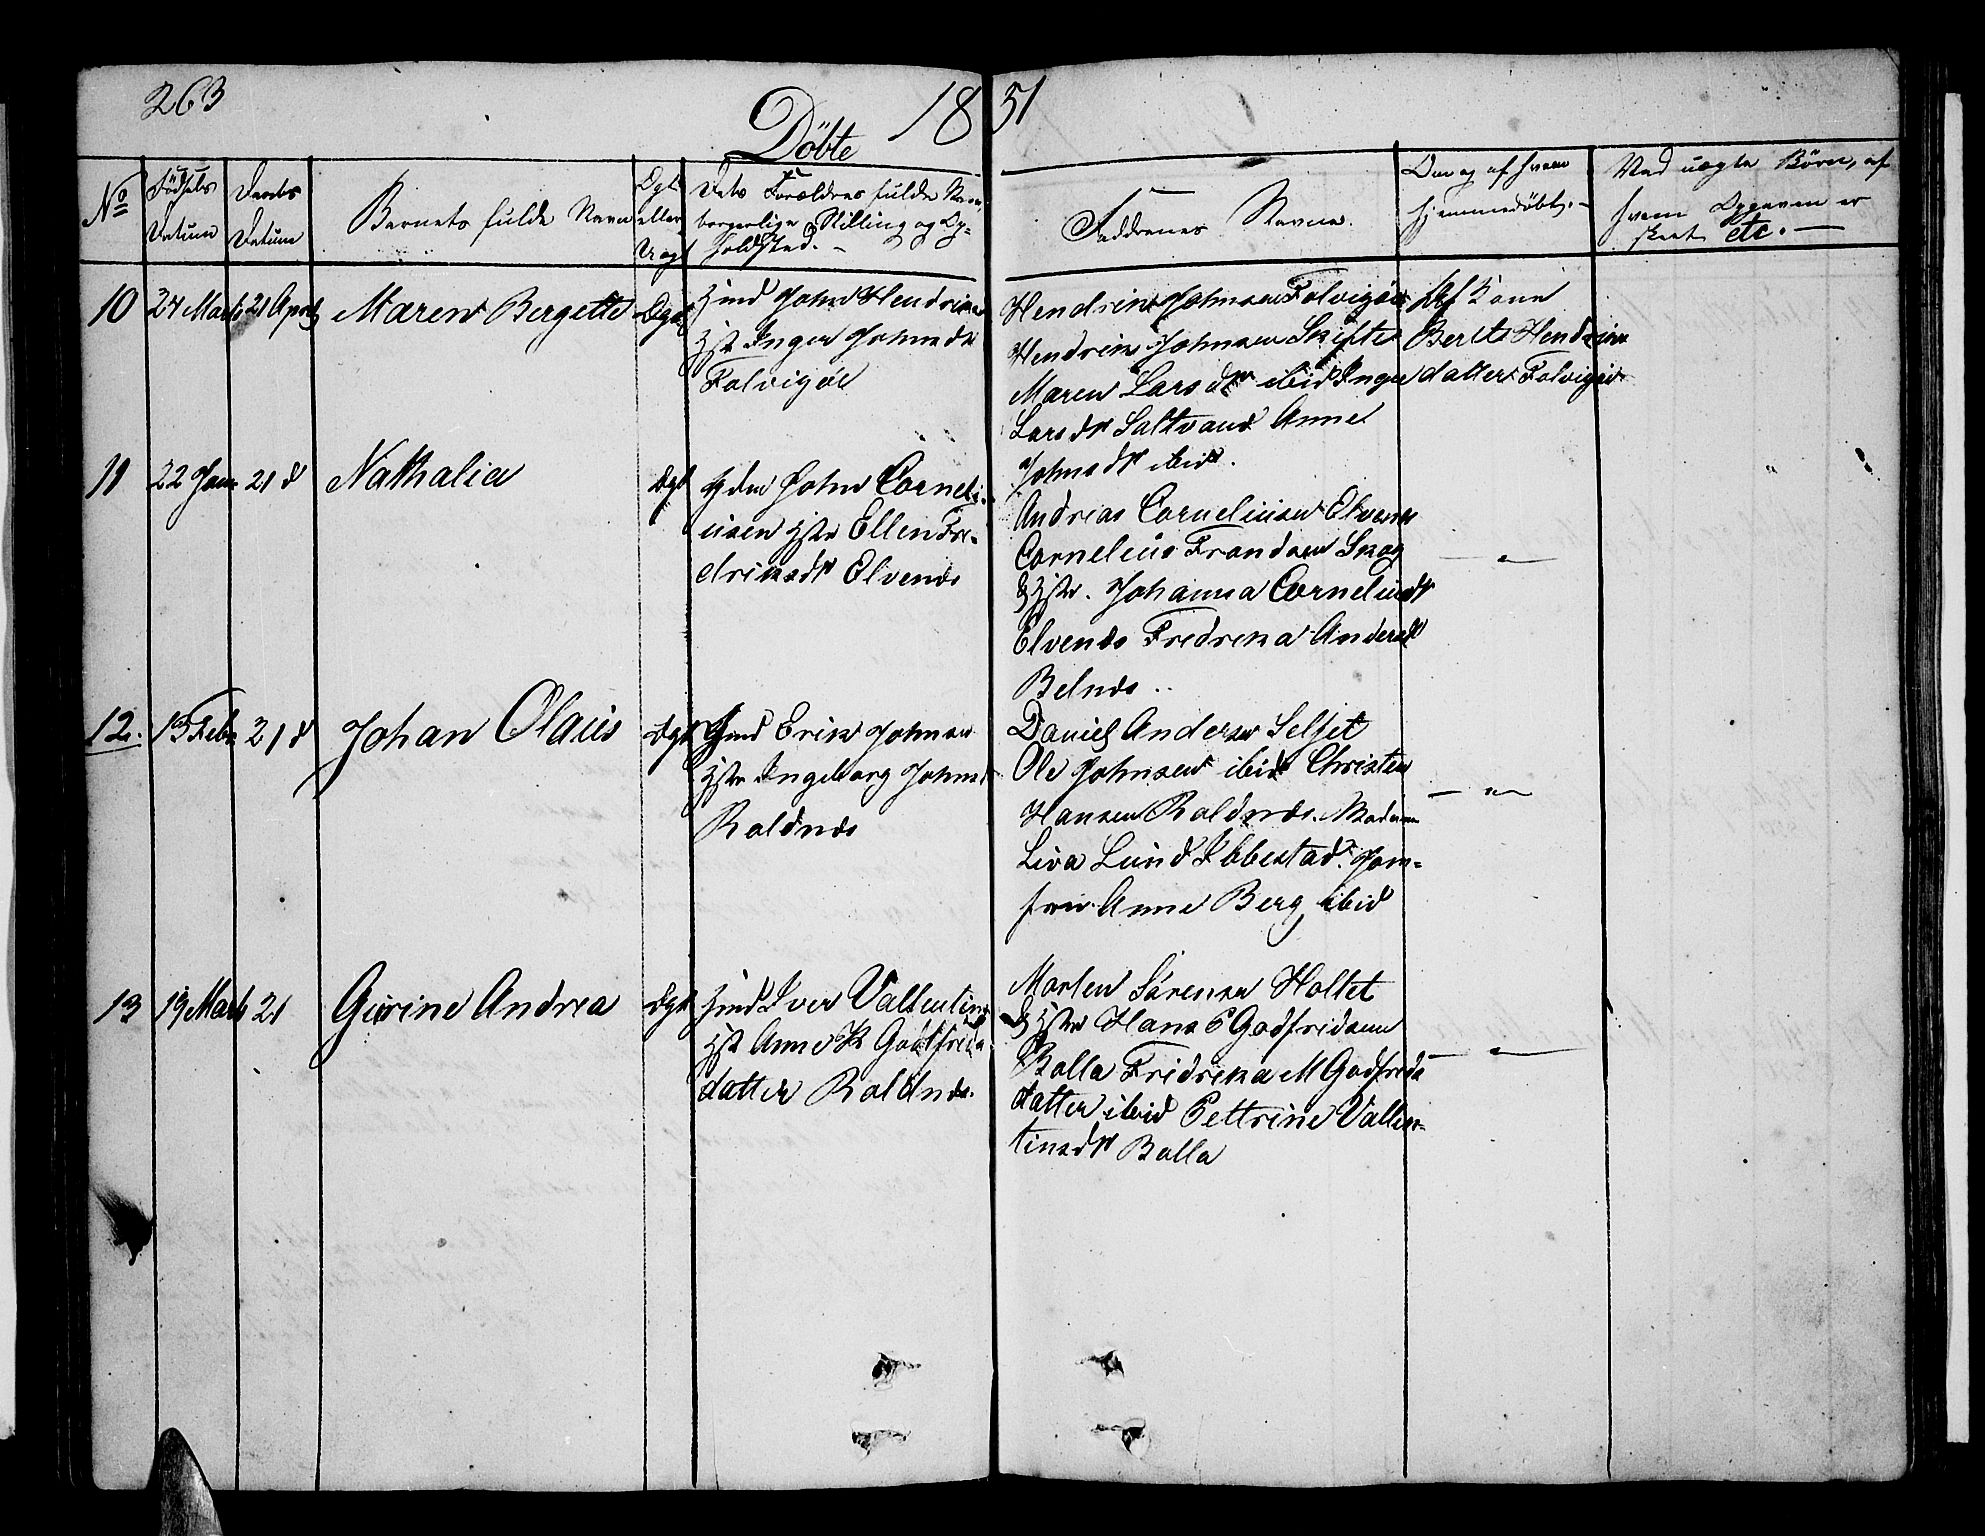 263
Döbte 18 51
No
Födsels Datum
Daabs Datum
Barnets fulde Navn
Ægte eller Uægte
Dets Forældres fulde Navn,
borgerlige Stilling og Op-
holdsted. -
Faddernes Navne.
Om og af hvem
hjemmedöbt. -
Ved uægte Börn, af
hvem Opgaven er
skeet etc. -
10 24 Marts 21 April Maren Bergette Ægte
Gmd John Hendriksen
Hstr Inger Johnsdtr
Folvigöe
Hendrik Johnsen Folvigöe
Hendrik Johnsen Skifte
Maren Larsdtr ibid Inger
Larsdtr Saltvand Anne
Johnsdtr ibid.
Af Kone
Berit Hendriks
datter Folvigöe
11 22 Jan 21 d Nathalia Ægt
Gdm John Corneli-
usen Hstr Ellen Fre-
driksdtr Elvenes
Andreas Corneliusen Elvenes
Cornelius Frandsen Skog
& Hstr. Johanna Corneliusdtr
Elvenes Fredrika Andersdtr
Belnes ..
- " -
12. 13 Febr 21 d Johan Olaus Ægt
Gmd Erik Johnsen
Hstr Ingeborg Johnsd
Roldnes
Daniel Andersen Selset
Ole Johnsen ibid Christen
Hansen Roldnes. Madam
Liva Lund Ibbestad. Jom-
fru Anne Berg ibid
- " -
13 19 Marts 21 Gurine Andrea Ægt
Hmd Iver Vallentins
Hst Anne K Godtfreds
datter Roldnes.
Morten Sörensen Holtet
& Hstr Hans P Godfridsen
Bolla Fridrika M Godfreds
datter ibid Pettrine Vallen-
tinsdtr Bolla
- " -